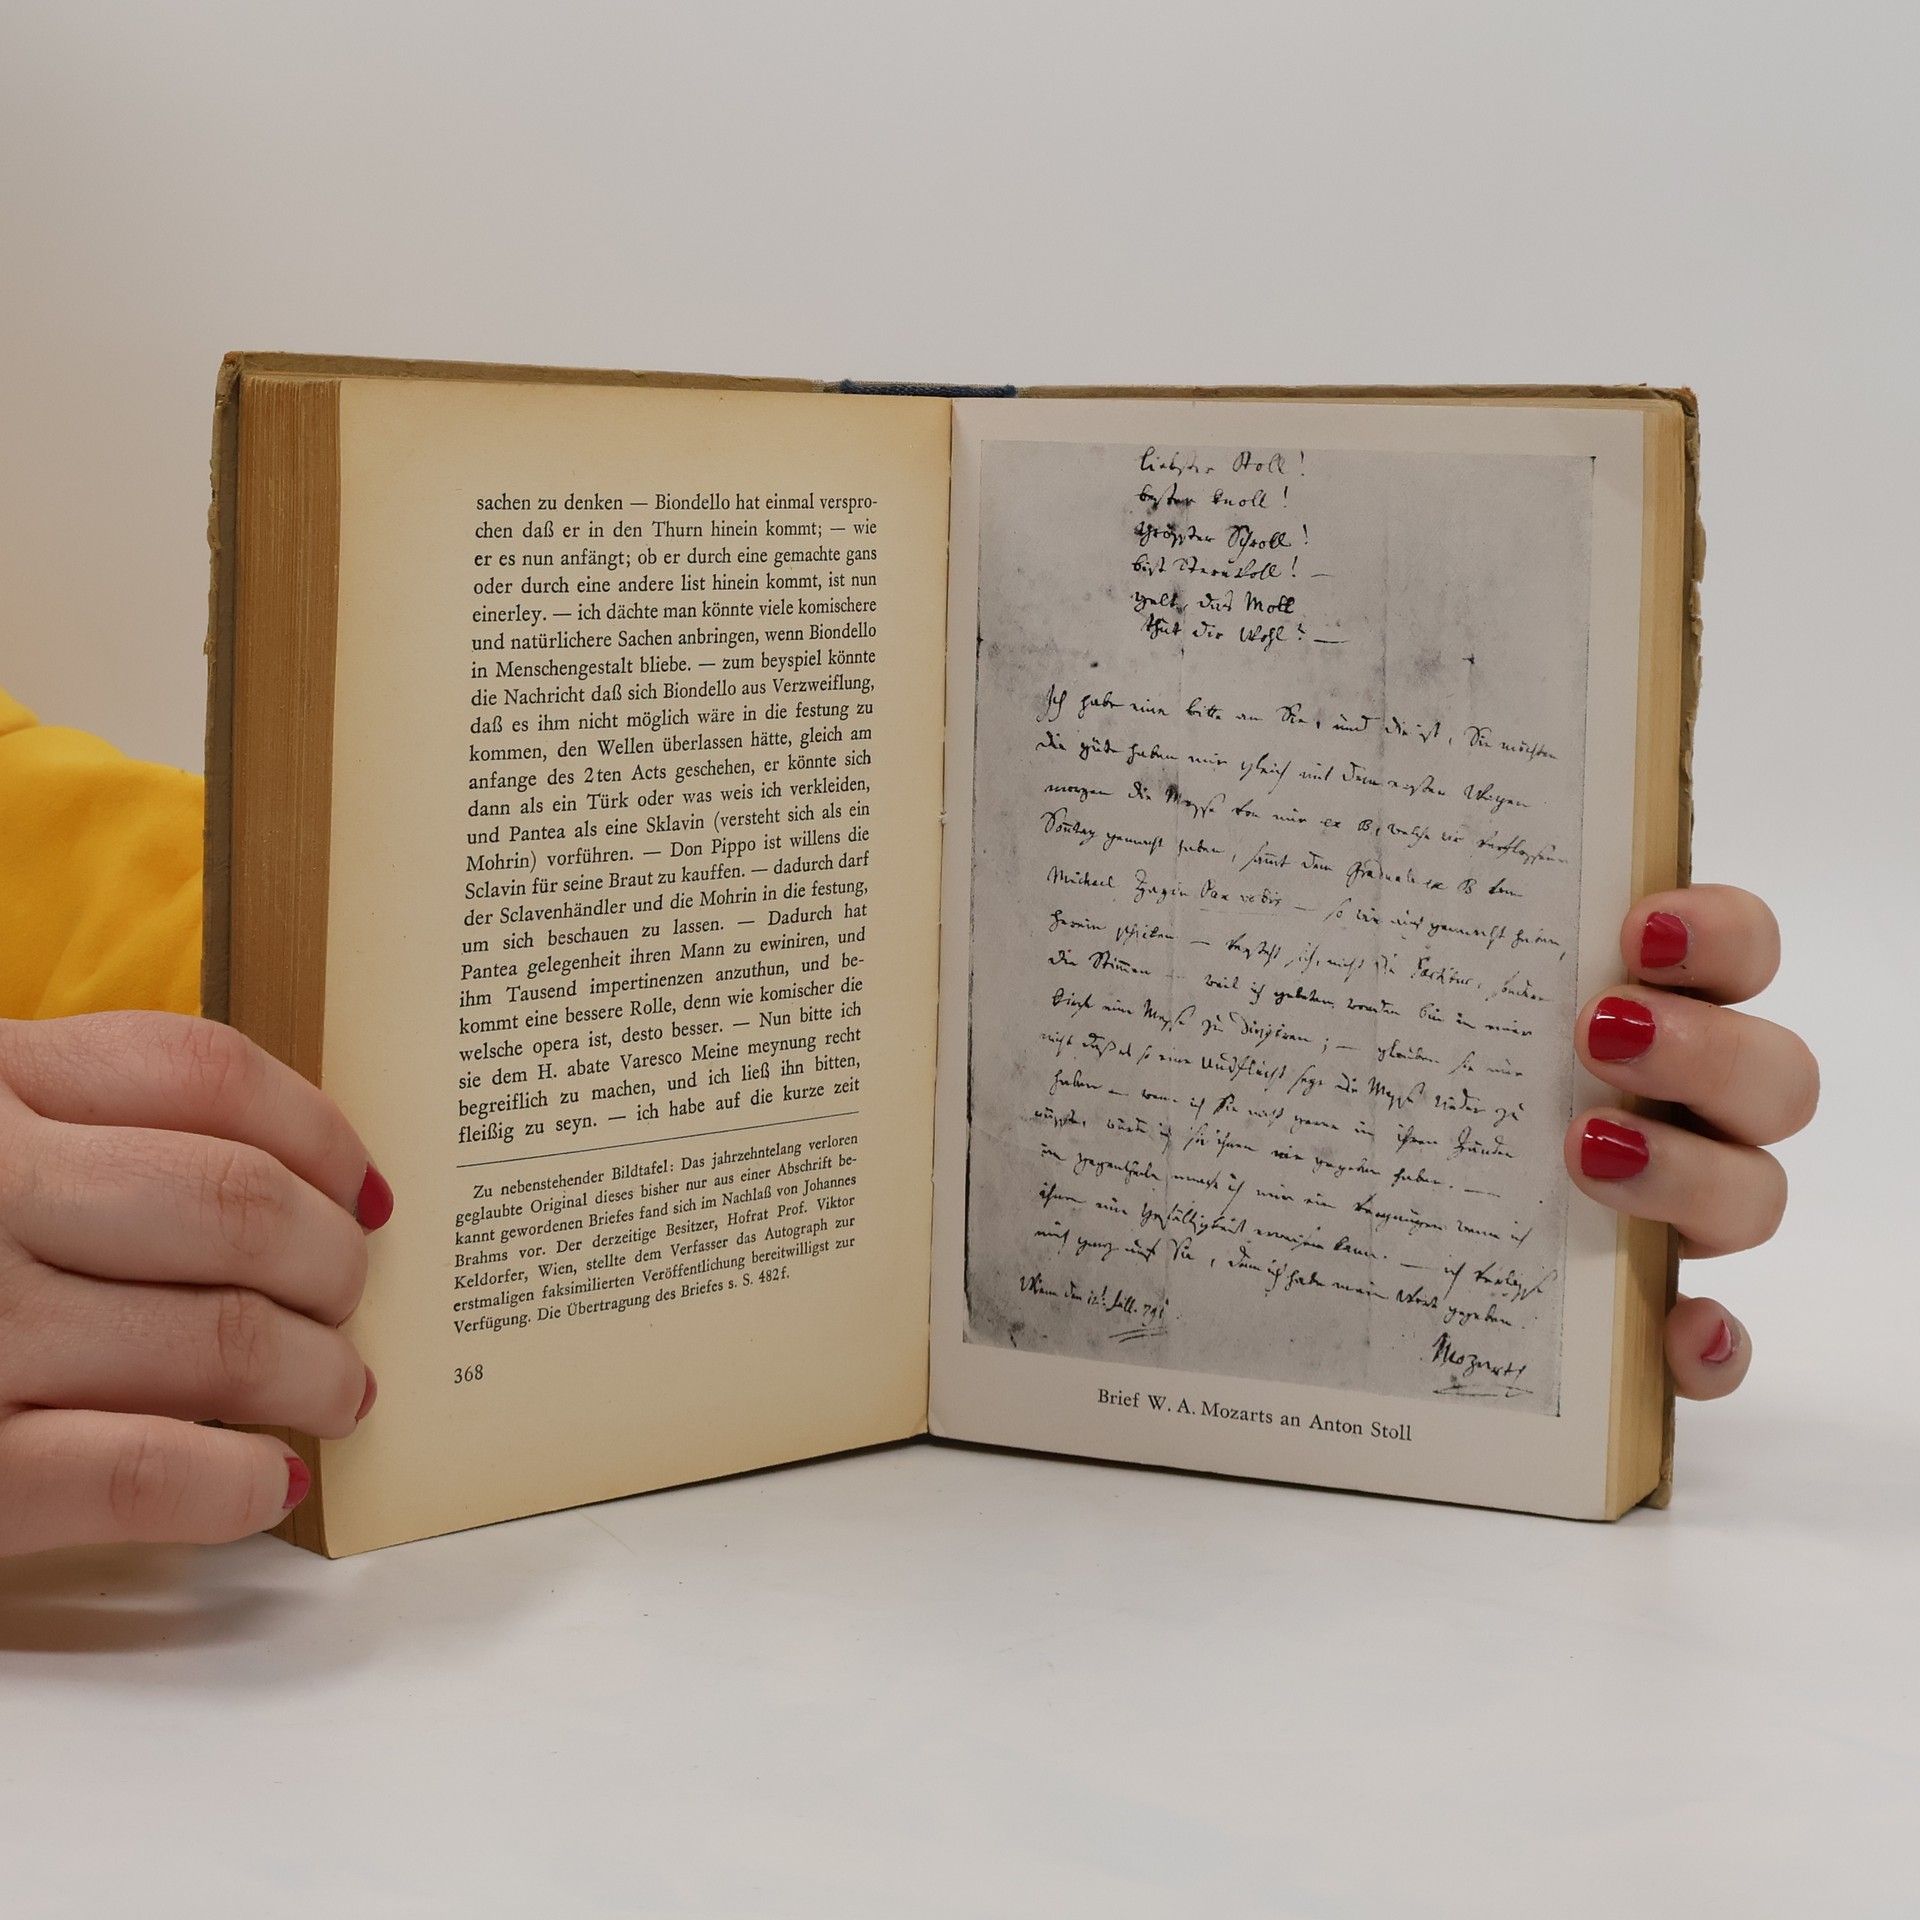 sachen zu denken — Biondello hat einmal verspro-
chen daß er in den Thurn hinein kommt; — wie
er es nun anfängt; ob er durch eine gemachte gans
oder durch eine andere list hinein kommt, ist nun
einerley. — ich dächte man könnte viele komischere
und natürlichere Sachen anbringen, wenn Biondello
in Menschengestalt bliebe. — zum beyspiel könnte
die Nachricht daß sich Biondello aus Verzweiflung,
daß es ihm nicht möglich wäre in die festung zu
kommen, den Wellen überlassen hätte, gleich am
anfange des 2ten Acts geschehen, er könnte sich
dann als ein Türk oder was weis ich verkleiden,
und Pantea als eine Sklavin (versteht sich als ein
Mohrin) vorführen. — Don Pippo ist willens die
Sclavin für seine Braut zu kauffen. — dadurch darf
der Sclavenhändler und die Mohrin in die festung,
um sich beschauen zu lassen. — Dadurch hat
Pantea gelegenheit ihren Mann zu ewiniren, und
ihm Tausend impertinenzen anzuthun, und be-
kommt eine bessere Rolle, denn wie komischer die
welsche opera ist, desto besser. — Nun bitte ich
sie dem H. abate Varesco Meine meynung recht
begreiflich zu machen, und ich ließ ihn bitten,
fleißig zu seyn. — ich habe auf die kurze zeit
Zu nebenstehender Bildtafel: Das jahrzehntelang verloren
geglaubte Original dieses bisher nur aus einer Abschrift be-
kannt gewordenen Briefes fand sich im Nachlaß von Johannes
Brahms vor. Der derzeitige Besitzer, Hofrat Prof. Viktor
Keldorfer, Wien, stellte dem Verfasser das Autograph zur
erstmaligen faksimilierten Veröffentlichung bereitwilligst zur
Verfügung. Die Übertragung des Briefes s. S. 482f.
368
liebster Stoll!
bester knoll!
grösster Schroll!
bist Sternvoll! —
gelt, das Moll
thut dir Wohl? —
Ich habe eine bitte an Sie, und die ist, Sie möchten
die güte haben mir gleich mit dem ersten Wagen
morgen die Messe von mir ex B, welche wir verflossenen
Sonntag gemacht haben, sammt dem Graduale ex B vom
Michael Haydn Pax vobis — so wir auch gemacht haben,
herein schicken — versteht sich, nicht die Partitur, sondern
die Stimmen — weil ich gebeten worden bin in einer
kirche eine Messe zu dirigiren; — glauben sie nur
nicht daß es so eine Ausflucht seye die Messe wieder zu
haben — wenn ich sie nicht gerne in ihren Händen
wüsste, würde ich sie ihnen nie gegeben haben. —
im gegentheile mache ich mir ein vergnügen wenn ich
ihnen eine gefälligkeit erweisen kann. — ich verlasse
mich ganz auf Sie, denn ich habe mein Wort gegeben.
Wien den 12t Jull. 791
Mozart
Brief W. A. Mozarts an Anton Stoll